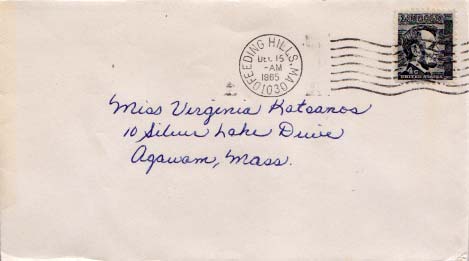 FEEDING HILLS, MA 01030
DEC 15
-AM
1965
4c
UNITED STATES
Miss Virginia Katsanos
10 Silver Lake Drive
Agawam, Mass.